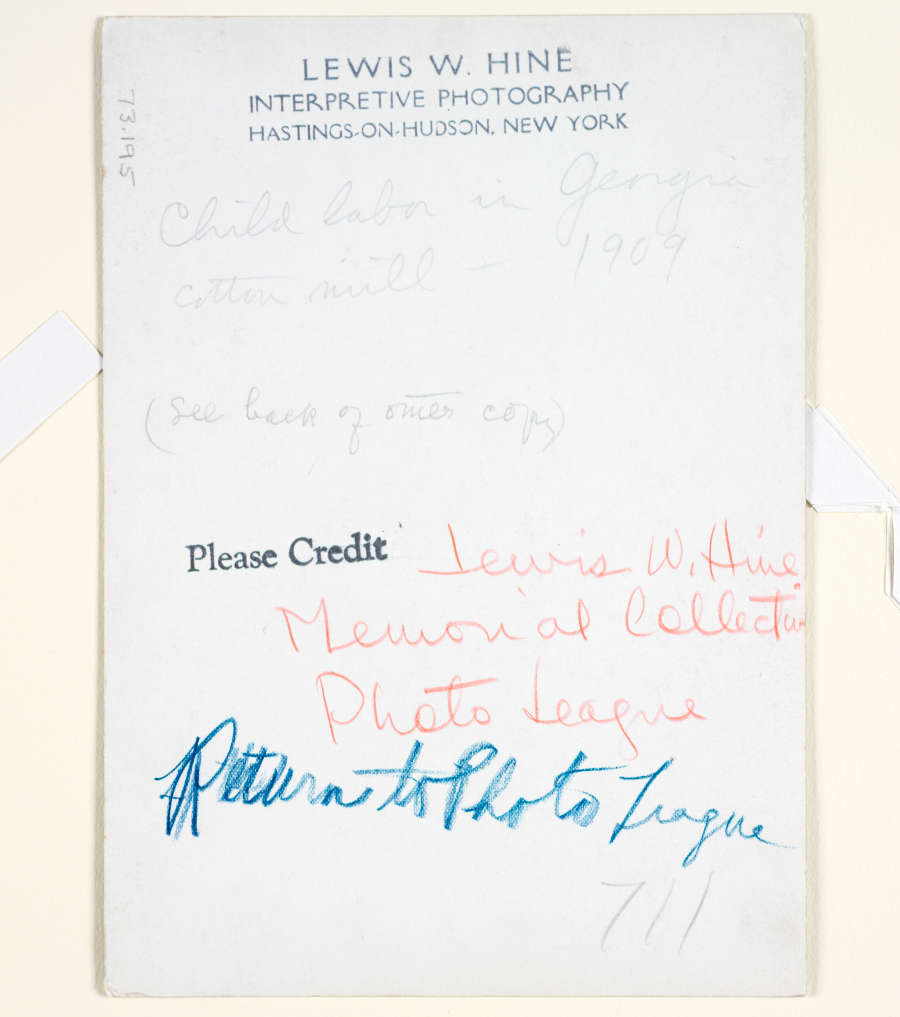 LEWIS W. HINE
INTERPRETIVE PHOTOGRAPHY
HASTINGS-ON-HUDSON, NEW YORK
73.195
Child labor in Georgia
cotton mill – 1909
(see back of other copy)
Please Credit Lewis W. Hine
Memorial Collection
Photo League
Return to Photo League
711